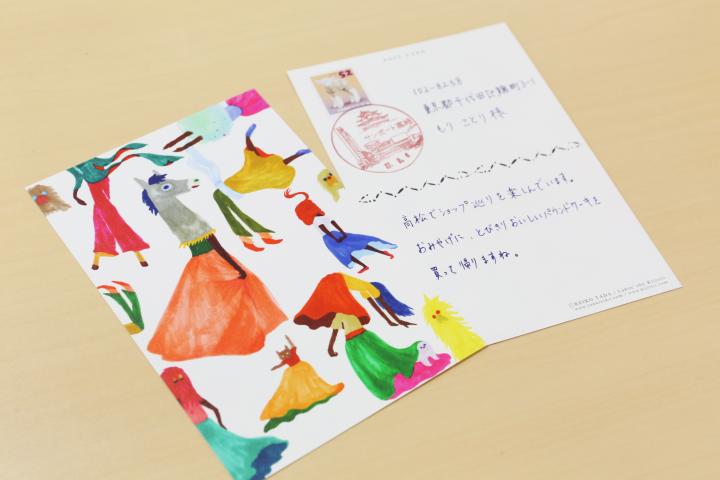 POST CARD
52
サンポート高松
102-8258
東京都千代田区麹町3-1
もり ことり 様
高松でショップ巡りを楽しんでいます。
おみやげに、とびきりおいしいパウンドケーキを
買って帰りますね。
©KEIKO TADA / Laroc the Kitties